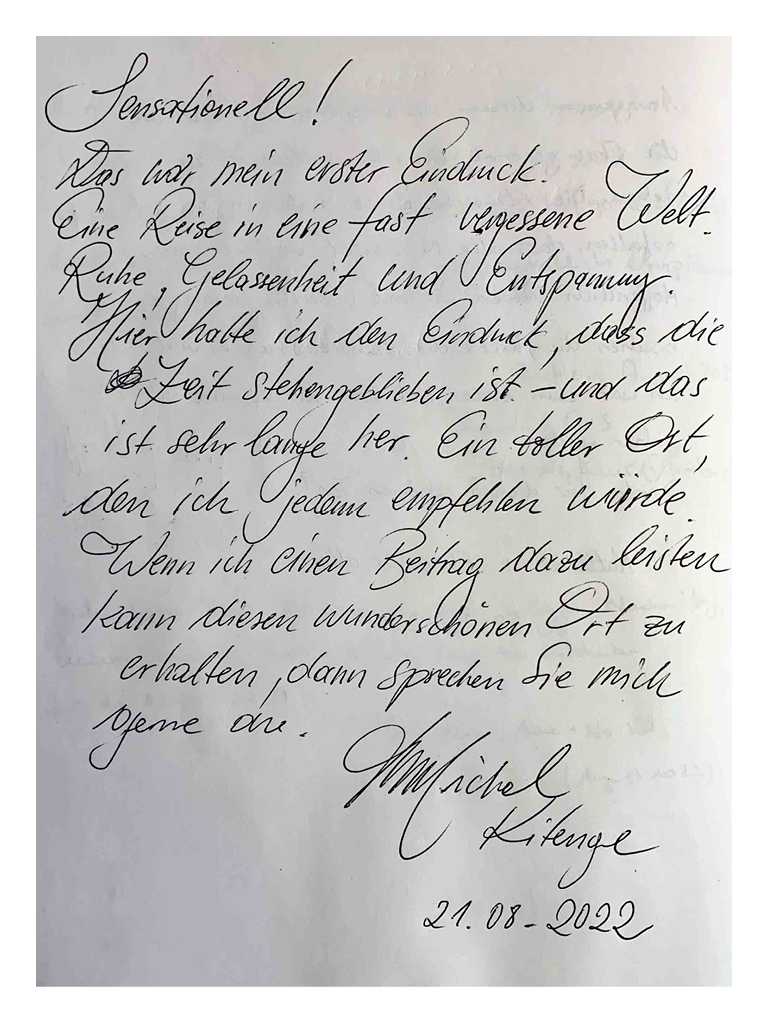 Sensationell!
Das war mein erster Eindruck.
Eine Reise in eine fast vergessene Welt.
Ruhe, Gelassenheit und Entspannung.
Hier hatte ich den Eindruck, dass die
Zeit stehengeblieben ist – und das
ist sehr lange her. Ein toller Ort,
den ich jedem empfehlen würde.
Wenn ich einen Beitrag dazu leisten
kann diesen wunderschönen Ort zu
erhalten, dann sprechen Sie mich
gerne an.
Michel
Kitenge
21.08-2022